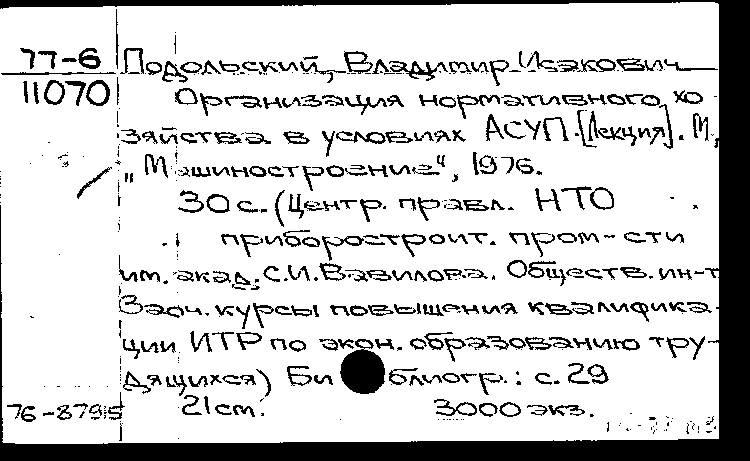 77-6 Подольский, Владимир Исакович
11070 Организация нормативного хо
зяйства в условиях АСУП. [Лекция]. М.,
„Машиностроение“, 1976.
30 с. (Центр. правл. НТО
приборостроит. пром-сти
им. акад. С.И. Вавилова. Обществ. ин-т
Заоч. курсы повышения квалифика-
ции ИТР по экон. образованию тру-
дящихся) Библиогр.: с. 29
76-87915 21 см. 3000 экз.